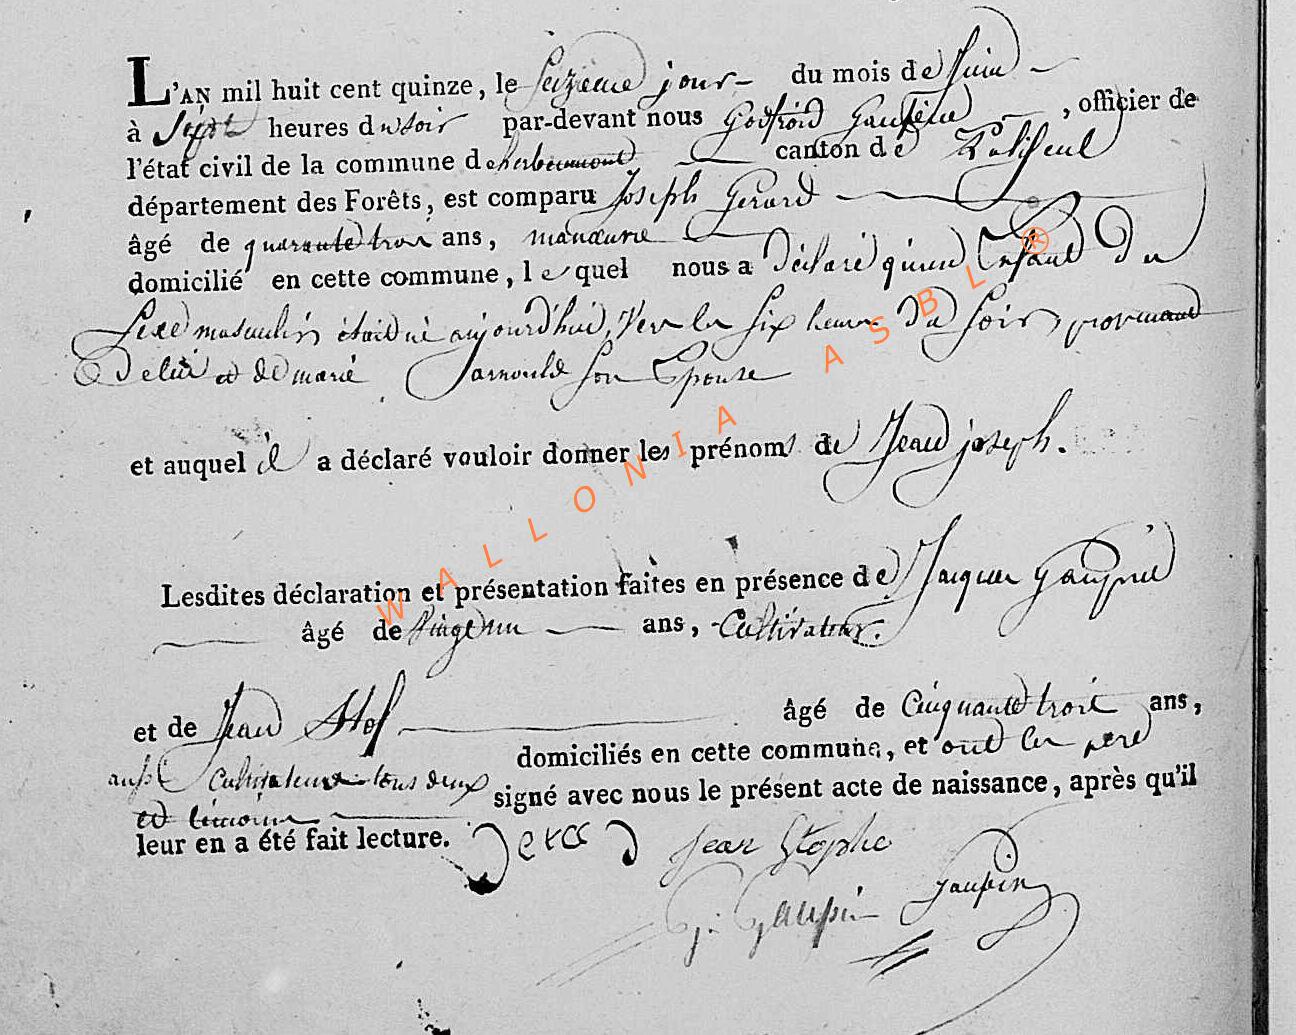 L'AN mil huit cent quinze, le Seizieme jour du mois de Juin
à Sept heures du soir par-devant nous Godfroid Gaupin, officier de
l'état civil de la commune de herbeumont canton de Paliseul
département des Forêts, est comparu Joseph Gerard
âgé de quarante trois ans, manœuvre
domicilié en cette commune, lequel nous a déclaré qu'un Enfant Du
Sexe masculin étoit né aujourd'hui, vers les six heures Du Soir, provenant
De lui et de marie Jarnould Son Epouse
et auquel il a déclaré vouloir donner les prénoms de Jean joseph.
Lesdites déclaration et présentation faites en présence de Jacques
âgé de vingt un ans, Cultivateur.
et de Jean âgé de Cinquante trois ans,
aussi Cultivateur tous deux domiciliés en cette commune, et ont les pere
et temoins signé avec nous le présent acte de naissance, après qu'il
leur en a été fait lecture.
Jean Stophe
Gaupin
G: Gaupin
WALLONIA ASBL ®